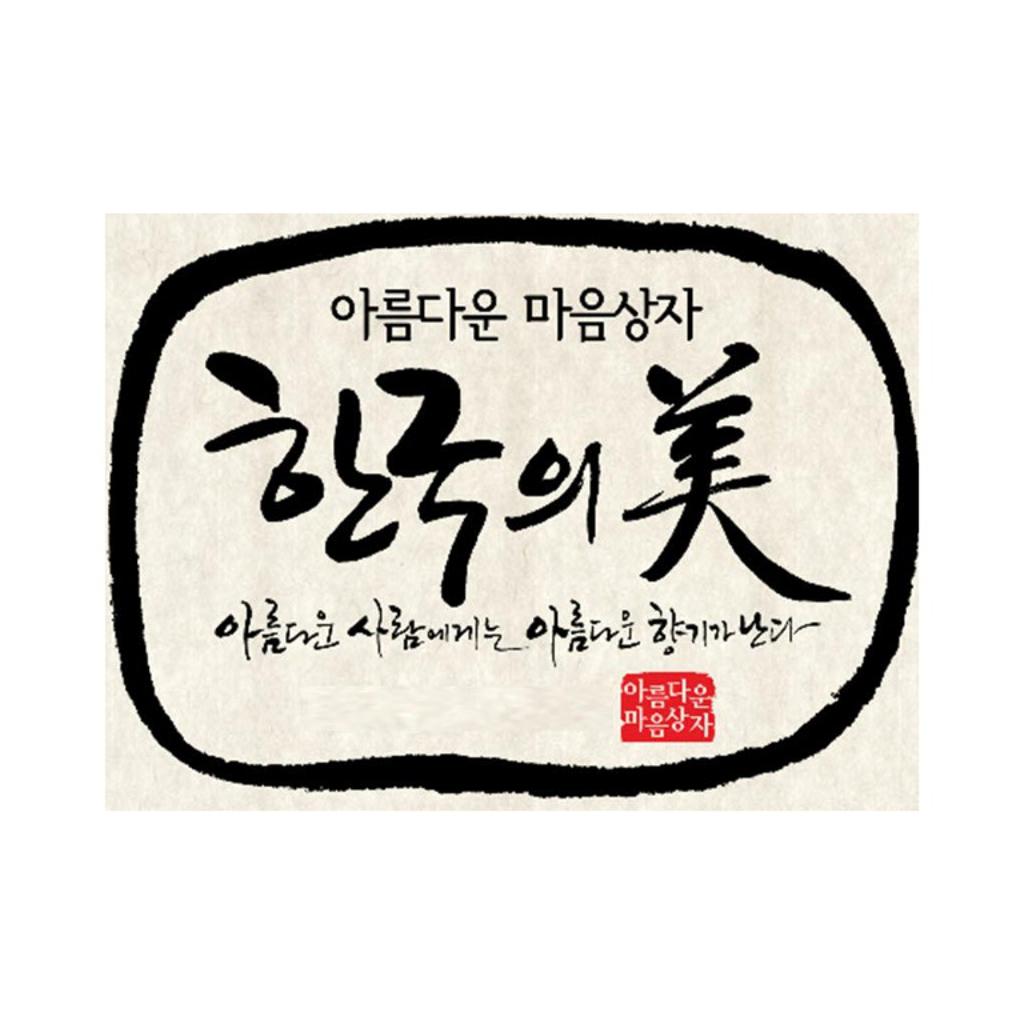 아름다운 마음상자
한국의 美
아름다운 사람에게는 아름다운 향기가 난다
아름다운
마음상자